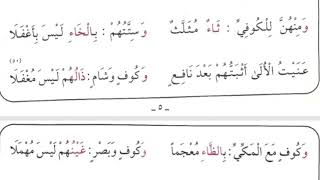 وَمِنْهُنَّ لِلْكُوفِيِّ : ثَاءٌ مُثَلَّثٌ وَسِتَّتُهُمْ : بِالْخَاءِ لَيْسَ بِأَغْفَلَا
عَنَيْتُ الْأُلَىٰ أَثْبَتُّهُمْ بَعْدَ نَافِعٍ وَكُوفٍ وَشَامٍ : ذَالُهُمْ لَيْسَ مُغْفَلَا (٥٠)
- ٥ -
وَكُوفٍ مَعَ الْمَكِّيِّ : بِالظَّاءِ مُعْجَمًا وَكُوفٍ وَبَصْرٍ : غَيْنُهُمْ لَيْسَ مُهْمَلَا